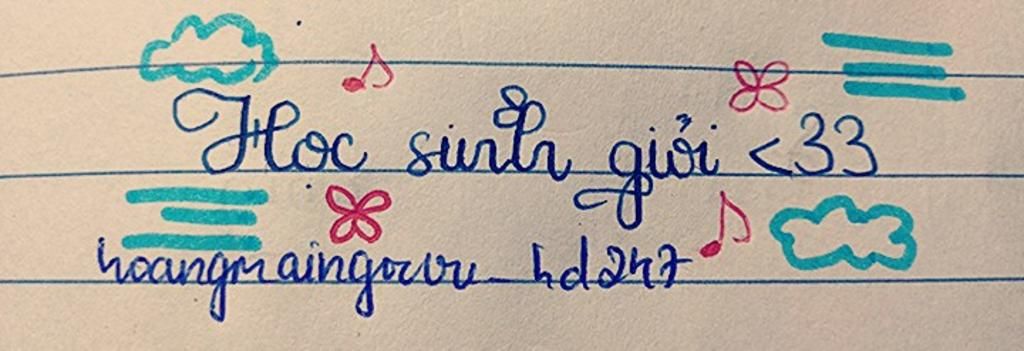 Học sinh giỏi <33
hoangmaingocvu_hd247